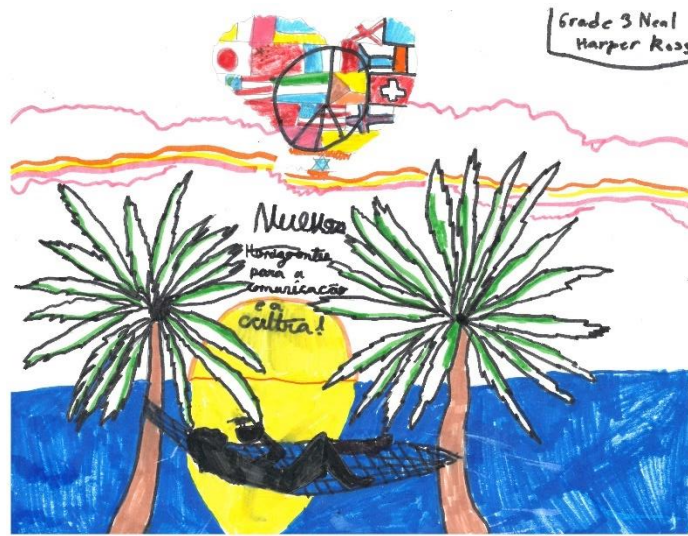 Grade 3 Neal
Harper Ross
Nuevos
Horizontes
para a
comunicação
e a
cultra!